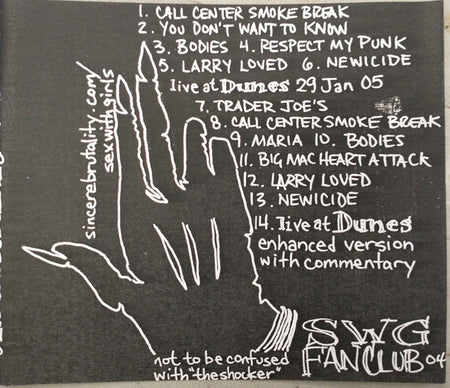 1. CALL CENTER SMOKE BREAK
2. YOU DON'T WANT TO KNOW
3. BODIES 4. RESPECT MY PUNK
5. LARRY LOVED 6. NEWICIDE
live at Dunes 29 Jan 05
7. TRADER JOE'S
8. CALL CENTER SMOKE BREAK
9. MARIA 10. BODIES
11. BIG MAC HEART ATTACK
12. LARRY LOVED
13. NEWICIDE
14. live at Dunes
enhanced version
with commentary
sincerebrutality.com/
sexwithgirls
not to be confused
with "the shocker"
SWG
FAN CLUB 04